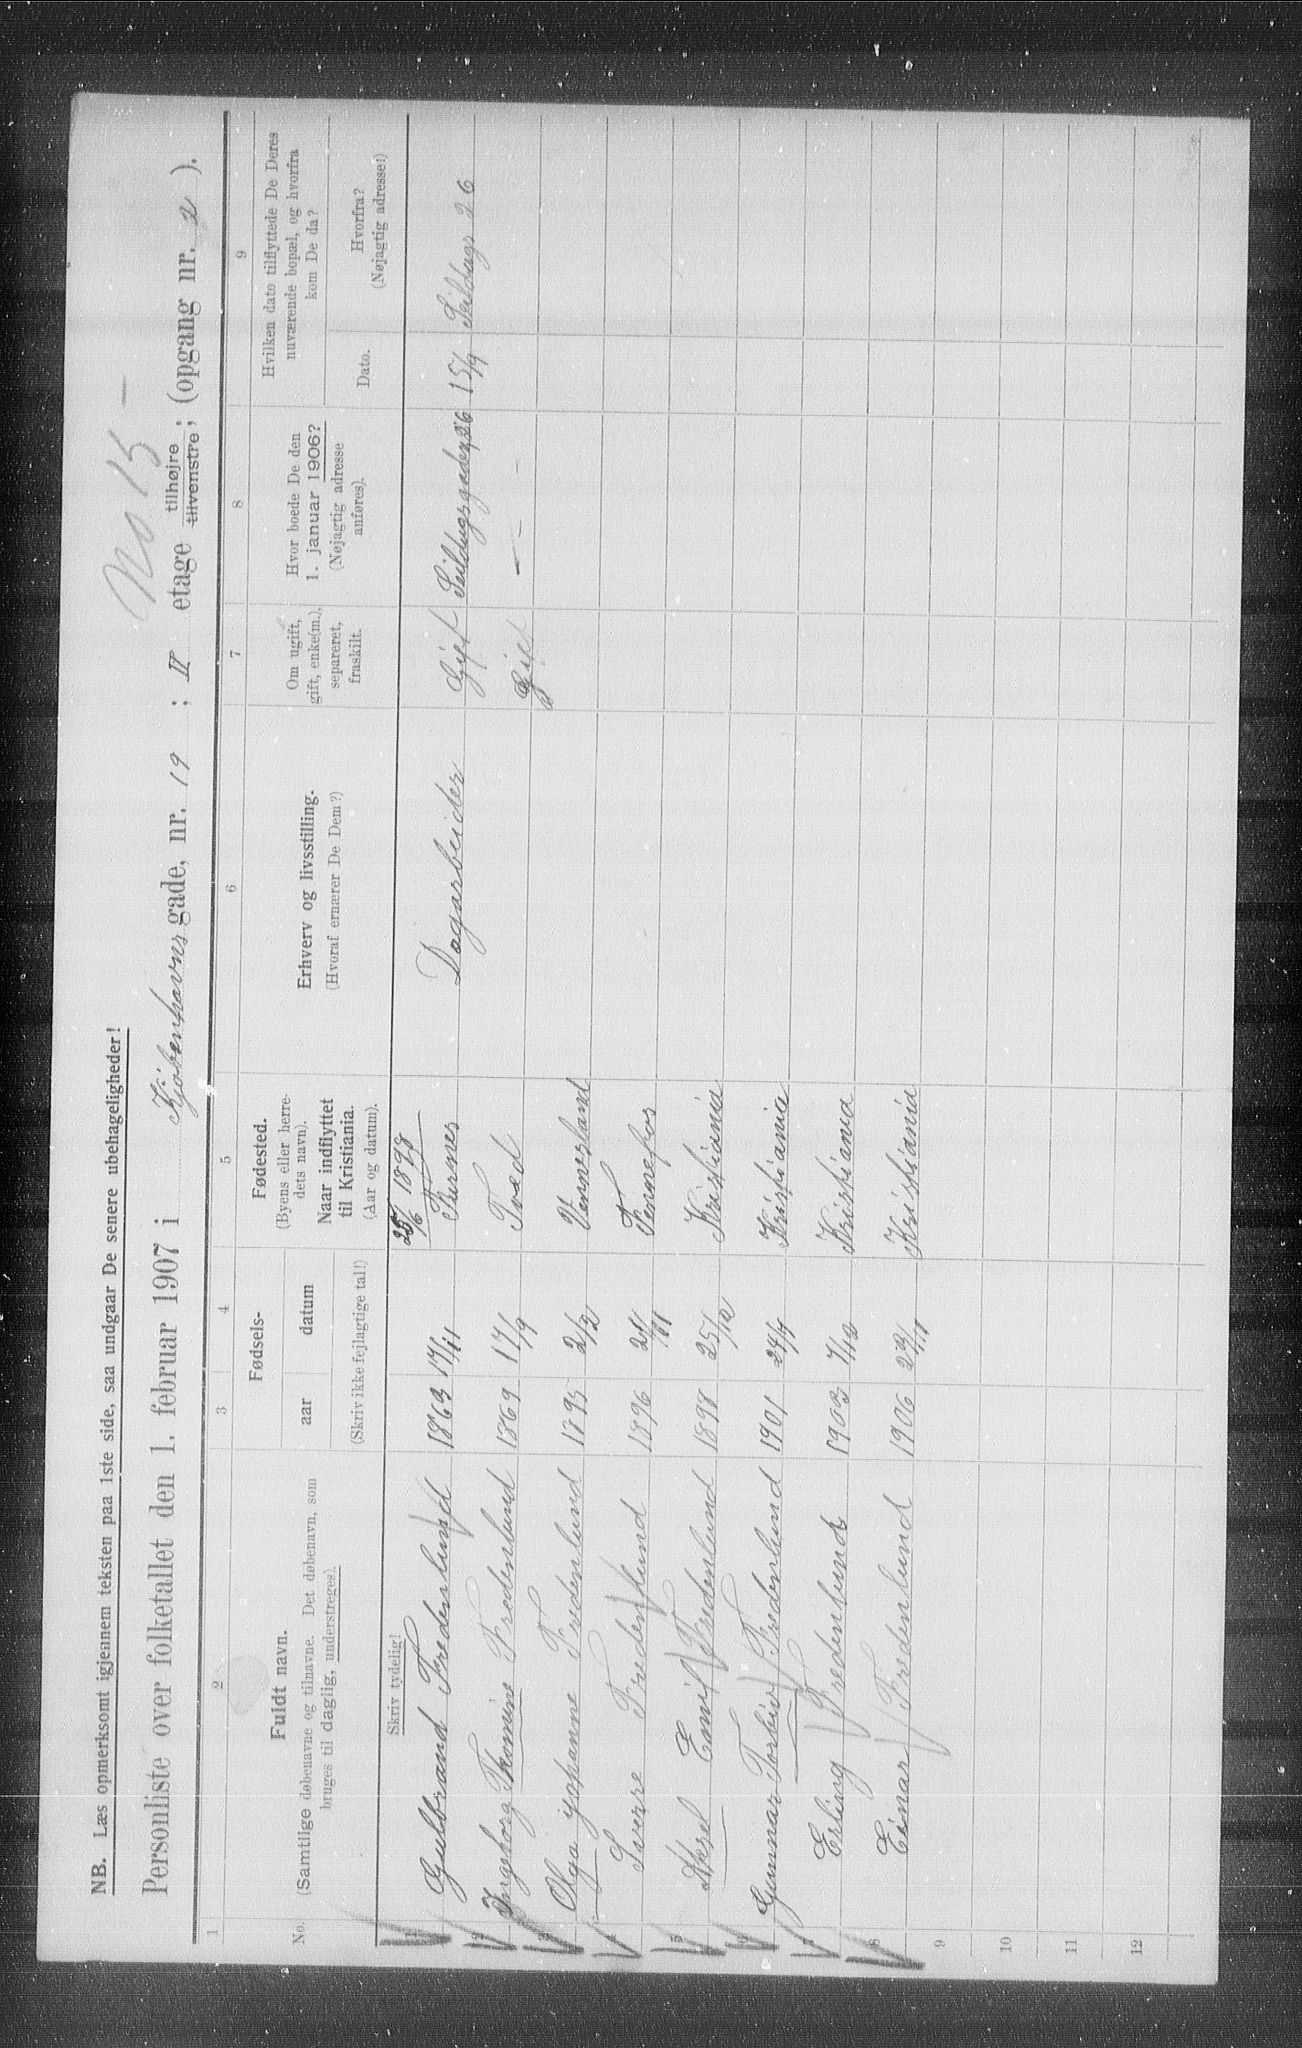 NB. Læs opmerksomt igjennem teksten paa 1ste side, saa undgaar De senere ubehageligheder!
No 15 —
Personliste over folketallet den 1. februar 1907 i Kjøbenhavns gade, nr. 19 ; II etage tilhøjre ; (opgang nr. 2 ).
tilvenstre
1 2 3 4 5 6 7 8 9
No.
Fuldt navn.
(Samtlige døbenavne og tilnavne. Det døbenavn, som
bruges til daglig, understreges).
Fødsels-
aar datum
(Skriv ikke fejlagtige tal!)
Fødested.
(Byens eller herre-
dets navn).
Naar indflyttet
til Kristiania.
(Aar og datum).
Erhverv og livsstilling.
(Hvoraf ernærer De Dem?)
Om ugift,
gift, enke(m.),
separeret,
fraskilt.
Hvor boede De den
1. januar 1906?
(Nøjagtig adresse
anføres).
Hvilken dato tilflyttede De Deres
nuværende bopæl, og hvorfra
kom De da?
Dato.
Hvorfra?
(Nøjagtig adresse!)
Skriv tydelig!
25/6 1898
1 Gulbrand Fredenlund 1863 14/11 Furnes Dagarbeider Gift Seildugsgaden 26 15/9 Seildugs 26
2 Ingeborg Thomine Fredenlund 1869 17/9 Tved Gift — — —
3 Olga Johanne Fredenlund 1895 2/2 Vennesland
4 Sverre Fredenlund 1896 Vennefos
5 Aksel Emil Fredenlund 1898 25/12 Kristiania
6 Gunnar Torbiv Fredenlund 1901 24/4 Kristiania
7 Erling Fredenlund 1903 7/12 Kristiania
8 Einar Fredenlund 1906 Kristiania
9
10
11
12